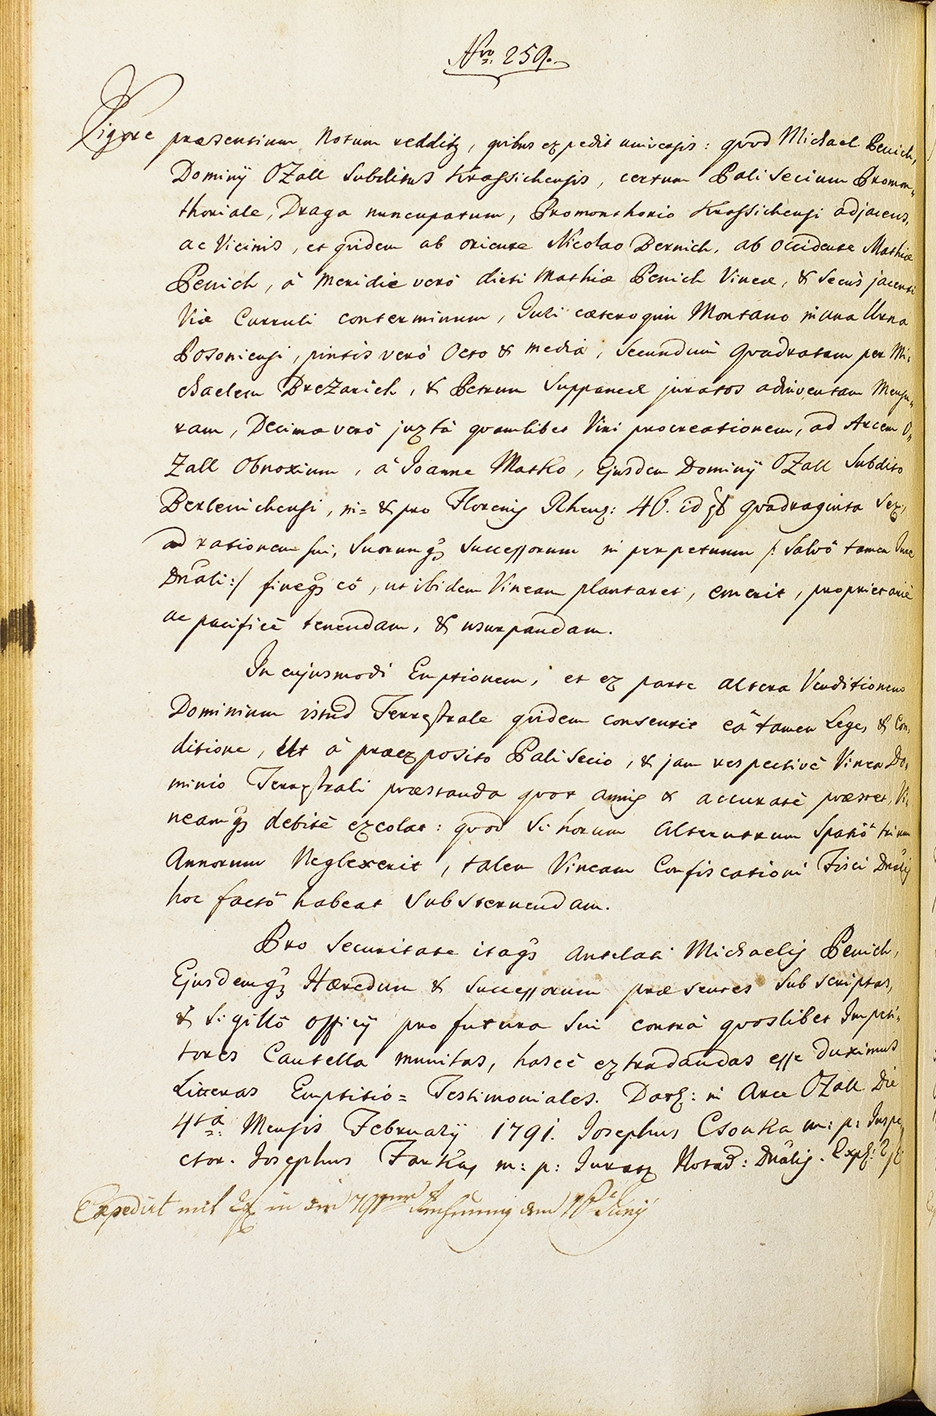 Nro 259.
Vigore praesentium Notum redditq, quibus expedit universis: quod Michael Penich,
Dominÿ OZall Subditus Krassichensis, certum Palisecium Promon=
thoriale, Draga nuncupatum, Promonthorio Krassichensi adjacens,
ac Vicinis, et quidem ab oriente Nicolao Bernich, ab occidente Mathiae
Penich, â Meridie verô dicti Mathiae Penich Vineae, & secùs jacenti
Viae Currali conterminum, Iuli caeteroquin Montano in una Urna
Posoniensi, pintis verô octo & media, secundum quadratam per Mi=
chaelem BreZarich, & Petrum Suppancz juratos adinventam Mensu=
ram, Decimae verô juxtâ quamlibet Vini procreationem, ad Arcem O=
Zall Obnoxium, â Joanne Matko, Ejusdem Dominÿ OZall Subdito
Bertenichensi, in= & pro Florenis Rhens: 46. id est quadraginta Sex,
ad rationem sui, Suorumq3 Successorum in perpetuum /: Salvô tamen Jure
Dnali:/ fineq3 eô, ut ibidem Vineam plantaret, emerit, proprietariè
ac pacificè tenendam, & usurpandam.
In cujusmodi Emptionem, et ex parte altera Venditionem
Dominium istud Terrestrale quidem consentit eâ tamen Lege, & Con=
ditione, Ut â praeexposito Palisecio, & jam respectivè Vinea Do=
minio Terrestrali praestanda quot annis & accuratè praestet, Vi=
neamq3 debitè excolat: quod si horum alterutrum Spatiô trium
Annorum Neglexerit, talem Vineam Confiscationi Fisci Dnalis
hoc factô habeat Substernendam.
Pro Securitate itaq3 Antelati Michaelis Penich,
Ejusdemq3 Haeredum & Successorum praesentes Subscriptas,
& Sigillô officÿ pro futura Sui contrâ quoslibet Impeti=
tores Cautella munitas, hascè extradandas esse duximus
Litteras Emptitio= Testimoniales. Datq: in Arce OZall Die
4tâ Mensis Februarÿ 1791. Josephus Csonka m: p: Inspe
ctor. Josephus Farkas m: p: Juratq Notar: Dnalis. Exp:
Expedirt mit in den 791 Rechnung den Junÿ